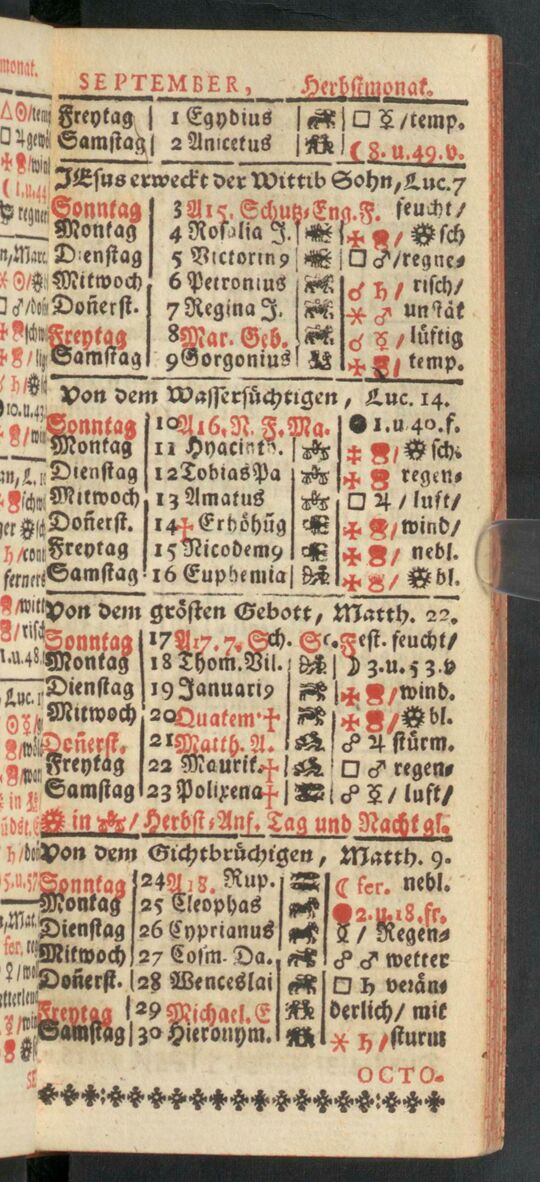 SEPTEMBER, Herbstmonat.
Freytag 1 Egydius □ ☿ / temp.
Samstag 2 Anicetus ☾ 8. u. 49. v.
JEsus erweckt der Wittib Sohn, Luc. 7
Sonntag 3 A15. Schutz-Eng. F. feucht /
Montag 4 Rosalia J. sch
Dienstag 5 Victorin9 □ ♂ / regne-
Mitwoch 6 Petronius ☌ ♄ / risch /
Doñerst. 7 Regina J. ⚹ ♂ unstät
Freytag 8 Mar. Geb. ☌ ☿ / lüftig
Samstag 9 Gorgonius temp.
Von dem Wassersüchtigen, Luc. 14.
Sonntag 10 A16. N. F. Ma. ● 1. u. 40. f.
Montag 11 Hyacinth. sch:
Dienstag 12 Tobias Pa regen-
Mitwoch 13 Amatus □ ♃ / luft /
Doñerst. 14 † Erhöhüg wind /
Freytag 15 Nicodem9 nebl.
Samstag 16 Euphemia bl.
Von dem grösten Gebott, Matth. 22.
Sonntag 17 A17. 7. Sch. Sc. Fest. feucht /
Montag 18 Thom. Vil. ☽ 3. u. 53. v
Dienstag 19 Januari9 wind.
Mitwoch 20 Quatem. † bl.
Doñerst. 21 Matth. A. ☍ ♃ stürm.
Freytag 22 Maurit. † □ ♂ regen-
Samstag 23 Polixena † ☍ ☿ / luft /
☼ in ♎ / Herbst-Anf. Tag und Nacht gl.
Von dem Gichtbrüchigen, Matth. 9.
Sonntag 24 A18. Rup. ☾ fer. nebl.
Montag 25 Cleophas 2. u. 18. fr.
Dienstag 26 Cyprianus ☿ / Regen-
Mitwoch 27 Cosm. Da. ☍ ♂ wetter
Doñerst. 28 Wenceslai □ ♄ verän-
Freytag 29 Michael. E derlich / mit
Samstag 30 Hieronym. ⚹ ♄ / sturm
OCTO-